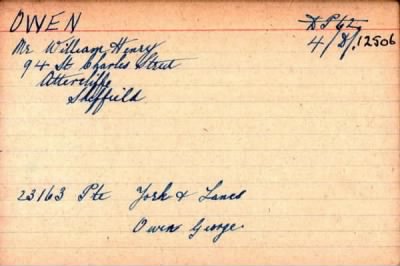 OWEN
DP62
Mr William Henry
4/D/.12506
94 St Charles Street
Attercliffe
Sheffield
23163 Pte York & Lancs
Owen George